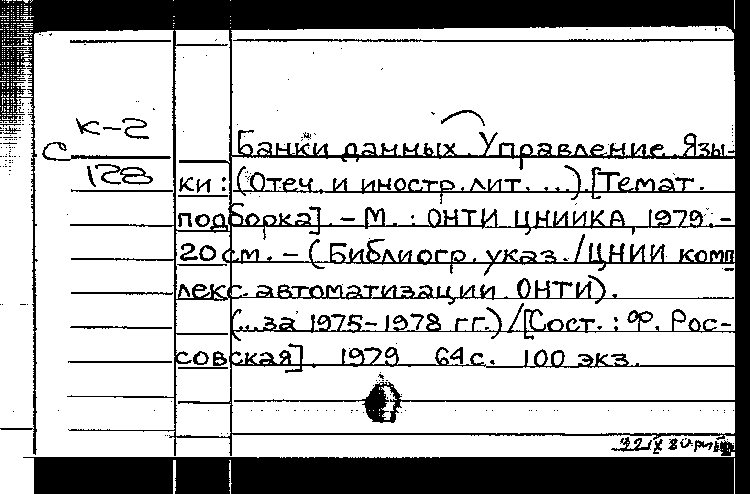 К-2
С
128
Банки данных. Управление. Язы-
ки: (Отеч. и иностр. лит. ...). [Темат.
подборка]. – М. : ОНТИ ЦНИИКА, 1979. –
20 см. – (Библиогр. указ. / ЦНИИ комп
лекс. автоматизации. ОНТИ).
(...за 1975–1978 гг.) / [Сост. : Ф. Рос-
совская]. 1979. 64 с. 100 экз.
22 X 80